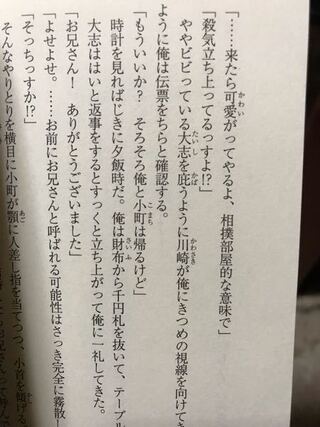 「……来たら可愛がってやるよ、相撲部屋的な意味で」
「殺気立ち上ってるっすよ!?」
ややビビっている大志を庇うように川崎が俺にきつめの視線を向けてき
ように俺は伝票をちらと確認する。
「もういいか？　そろそろ俺と小町は帰るけど」
時計を見ればじきに夕飯時だ。俺は財布から千円札を抜いて、テーブル
大志ははいと返事をするとすっくと立ち上がって俺に一礼してきた。
「お兄さん！　ありがとうございました」
「よせよせ。……お前にお兄さんと呼ばれる可能性はさっき完全に霧散し
「そっちっすか!?」
そんなやりとりを横目に小町が顎に人差し指を当てつつ、小首を傾げる